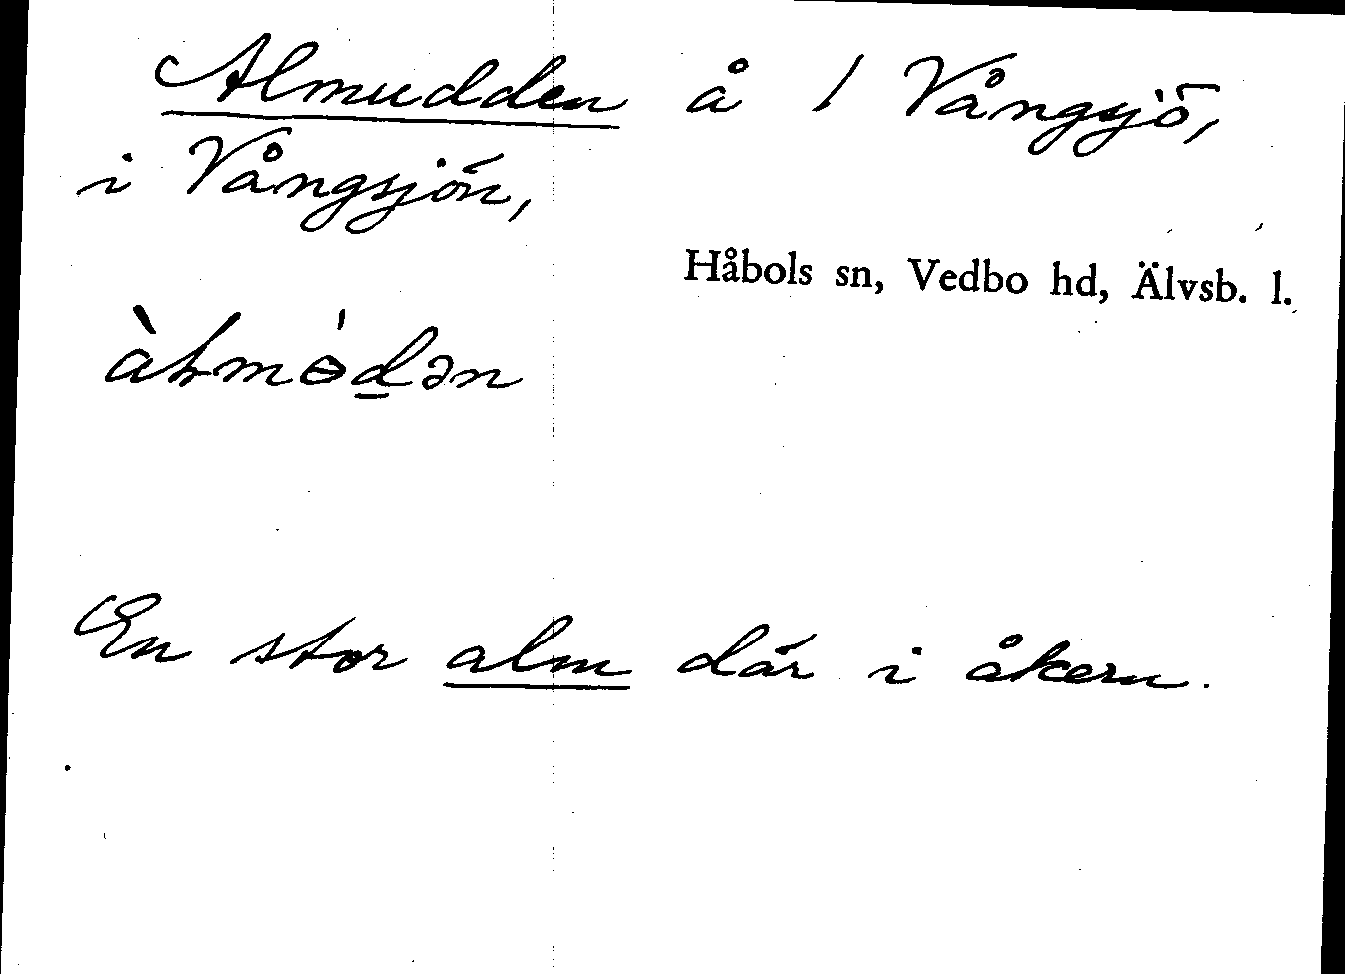 Almudden å 1 Vångsjö,
i Vångsjön,
Håbols sn, Vedbo hd, Älvsb. l.
àɫmɵ́d̲ən
En stor alm där i åkern.